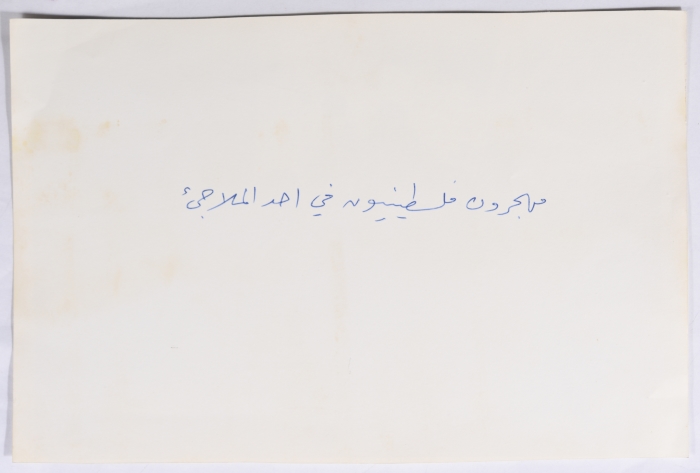 مهجرون فلسطينيون في احد الملاجئ